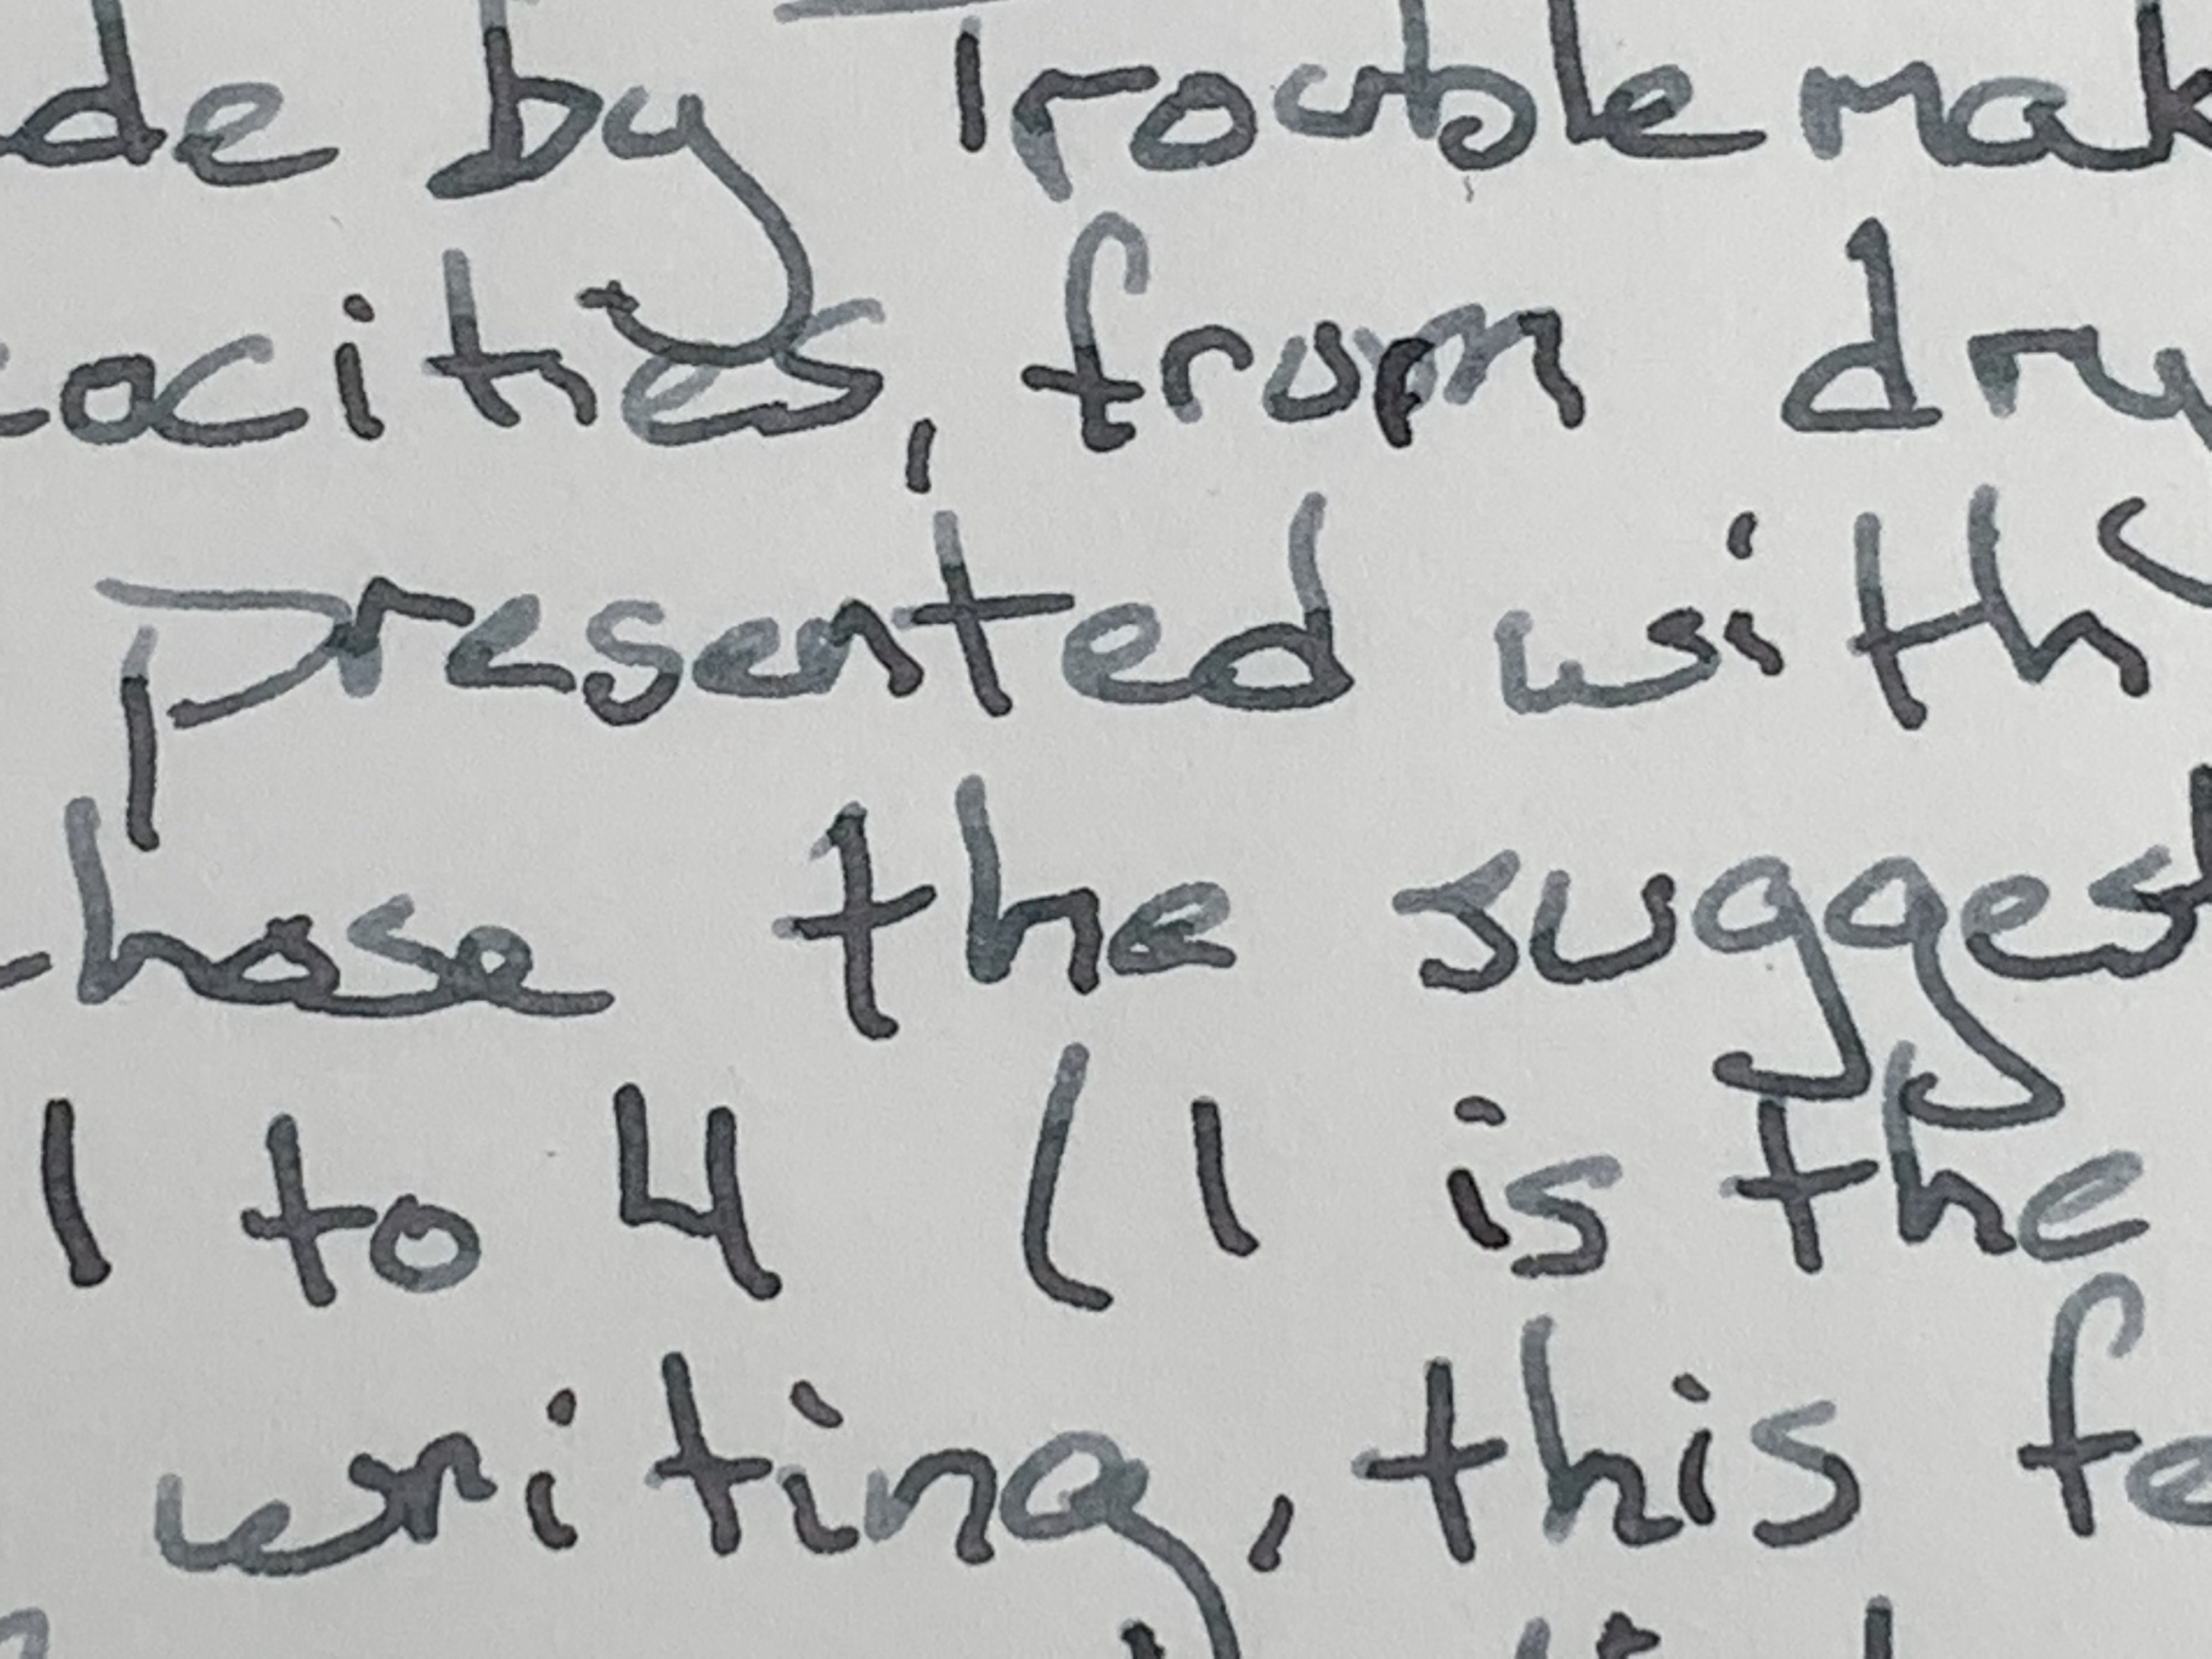 de by Troublemak
cacities, from dry
presented with
chose the suggest
1 to 4 (1 is the
writing, this fe